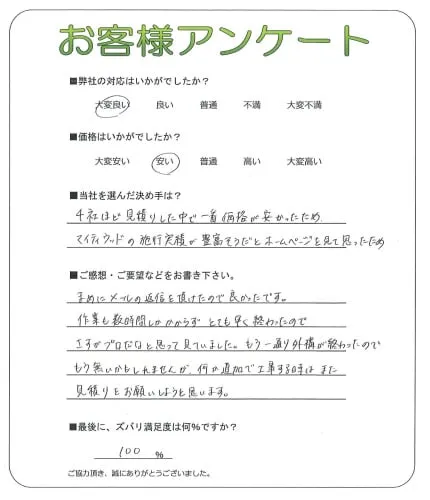 お客様アンケート
■弊社の対応はいかがでしたか？
大変良い 良い 普通 不満 大変不満
■価格はいかがでしたか？
大変安い 安い 普通 高い 大変高い
■当社を選んだ決め手は？
4社ほど見積りした中で一番価格が安かったため
マイティウッドの施行実績が豊富そうだとホームページを見て思ったため
■ご感想・ご要望などをお書き下さい。
まめにメールの返信を頂けたので良かったです。
作業も数時間しかかからず とても早く終わったので
さすがプロだなと思って見ていました。もう一通り外構が終わったので
もう無いかもしれませんが、何か追加で工事する時は また
見積りをお願いしようと思います。
■最後に、ズバリ満足度は何%ですか？
100 %
ご協力頂き、誠にありがとうございました。